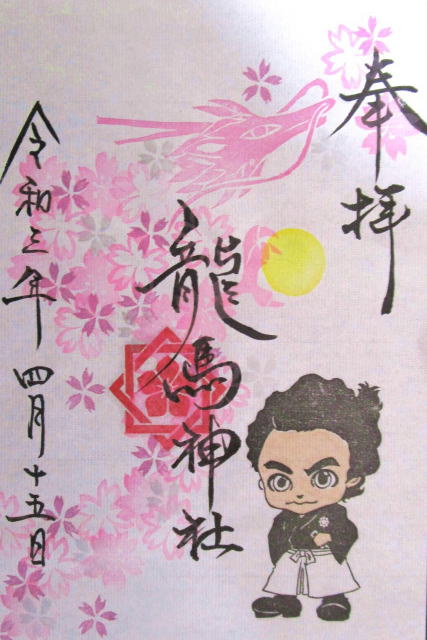 奉拝
龍馬神社
令和三年四月十五日